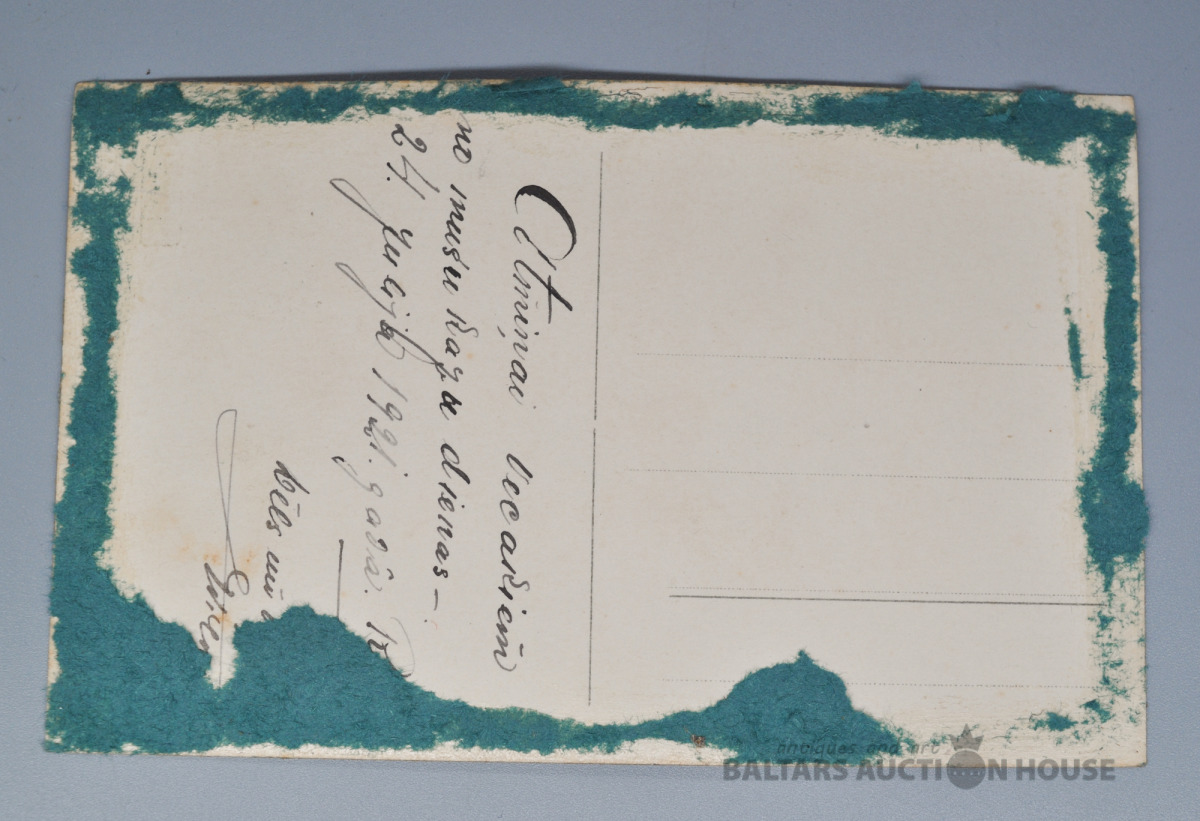 Atmiņai vecakiem
no musu kazu dienas –
24. Julijā 1921. gadā.
antiques and art
BALTARS AUCTION HOUSE